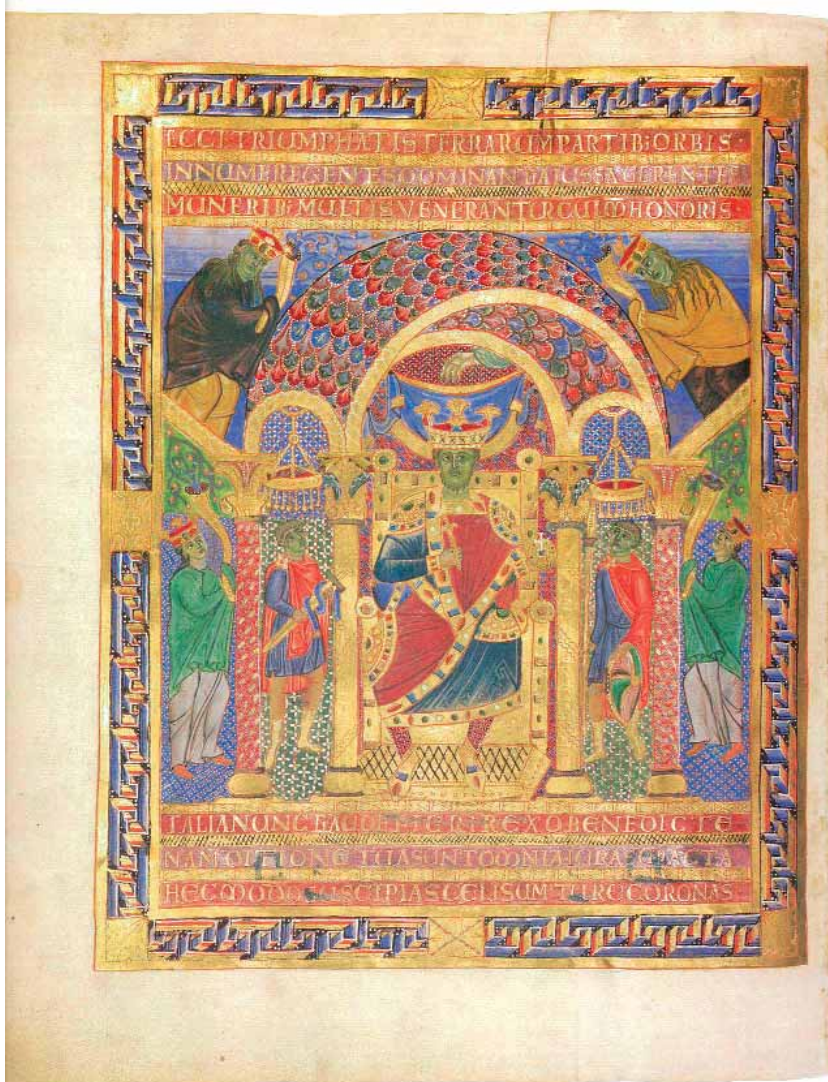 ECCE TRIUMPHATIS TERRARUM PARTIB; ORBIS·
INNUMERE GENTES DOMINANTIA IUSSA GERENTES
MUNERIB; MULTIS VENERANTUR CULM̄ HONORIS·
TALIA NUNC GAUDE FIERI REX O BENEDICTE
NAM DITIONE TUA SUNT OMNIA IURA SUBACTA
HEC MODO SUSCIPIAS CELI SUMTURE CORONAS·